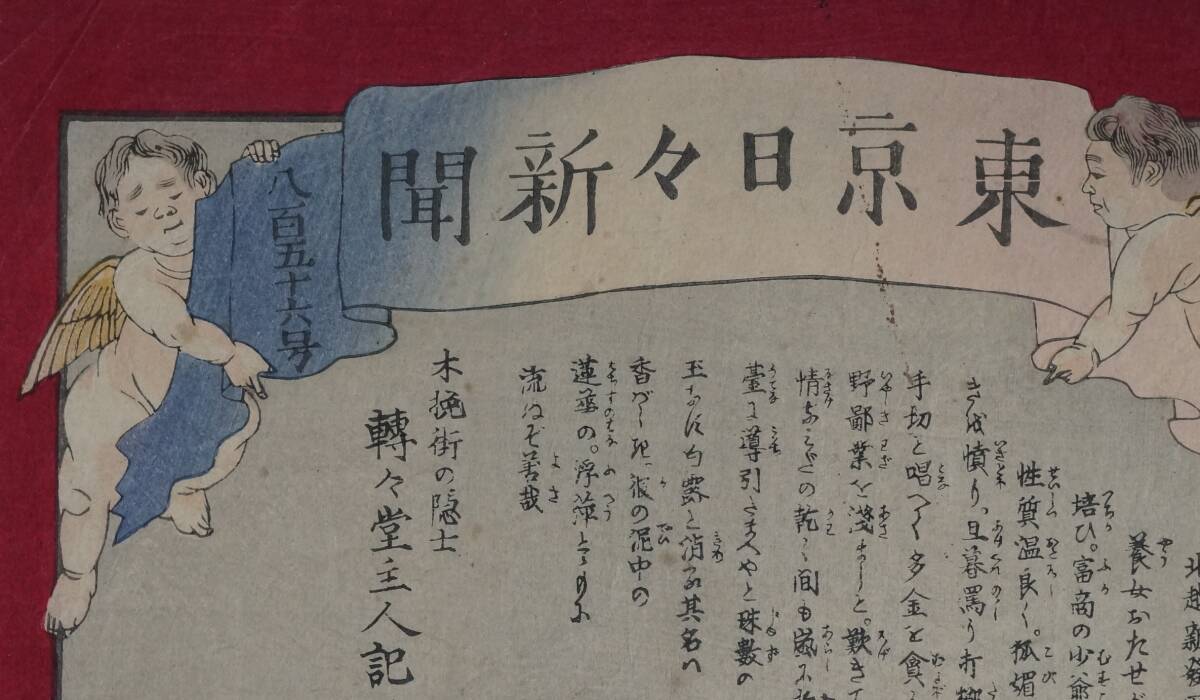 東京日々新聞
八百五十六号
北越新
養女おたせ
培ひ。富商の少爺
性質温良く。狐媚
きを憤り。旦暮罵り打
手切と唱へて多金を貪
野鄙業を淺ましと。歎き
情なみだの乾く間も嵐に
臺に導引たまへやと珠數の
玉なす白露と消る其名ハ
香ばしき。彼の泥中の
蓮葉の。浮萍とともに
流れぞ善哉
木挽街の隠士
轉々堂主人記